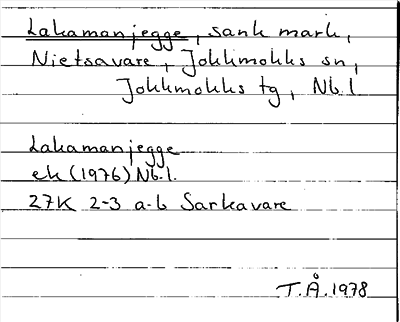 Lakamanjegge, sank mark,
Nietsavare, Jokkmokks sn,
Jokkmokks tg, Nb.l.
Lakamanjegge
ek (1976) Nb.l.
27K 2-3 a-b Sarkavare
T.Å. 1978